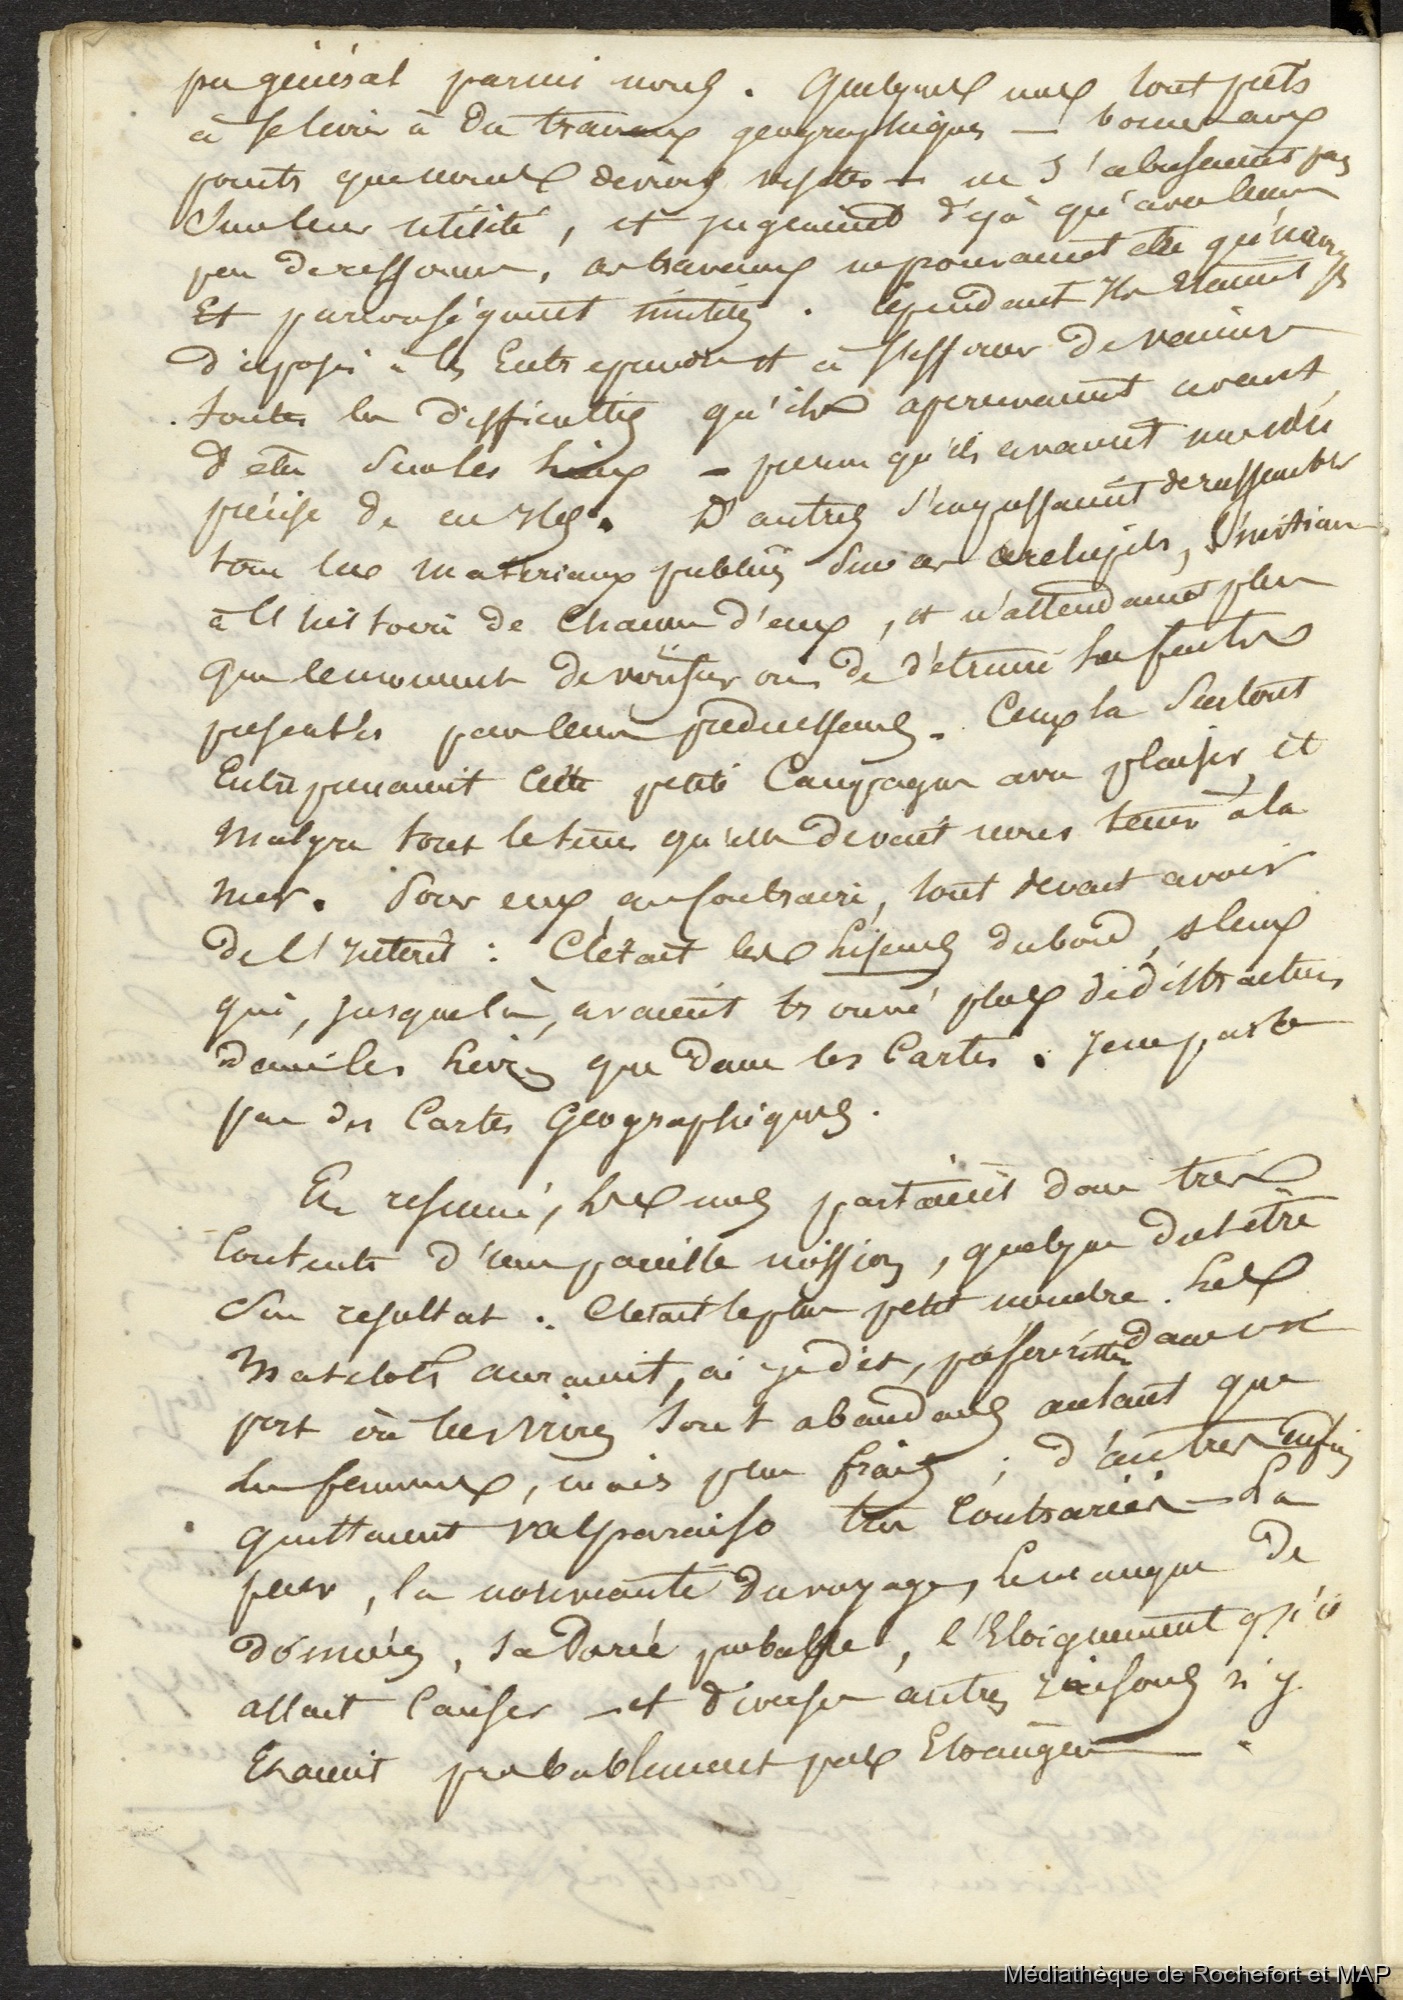 pas général parmi nous. Quelques uns tout prêts
à se livrer à des travaux geographiques — bornés aux
points que nous devions visiter — ne s'abusaient pas
sur leur utilité, et jugeaient déjà qu'avec leur
peu de ressources, ces travaux ne pouvaient être qu'
Et par conséquent inutiles. Cependant ils étaient
disposés à les Entreprendre et à s'efforcer de vaincre
toutes les difficultés qu'ils apercevaient avant
d'être sur les lieux — puisqu'ils avaient une idée
précise de ces Iles. D'autres s'empressaient de rassembler
tous les materiaux publiés sur ces archipels, s'initiaient
à l'histoire de chacun d'eux, et n'attendaient plus
que le moment de vérifier ou de détruire les faits
presentés par leurs predecesseurs. Ceux là surtout
Entreprenaient cette petite Campagne avec plaisir, et
malgré tout le tems qu'elle devait nous tenir à la
mer. Pour eux, au contraire, tout devait avoir
de l'interêt: C'était les liseurs du bord, ceux
qui, jusques là, avaient trouvé plus de distractions
dans les livres que dans les Cartes. Je ne parle
pas des Cartes Géographiques.
En resumé, les uns partaient donc très
contents d'une pareille mission, quelque dut être
son resultat. C'était le plus petit nombre. Les
Matelots auraient, ai-je dit, préféré rester dans un
port où les vivres sont abondans autant que
les femmes, mais plus frais; d'autres enfin
quittaient Valparaiso très contrariés — La
peur, la nouveauté du voyage, le manque de
données, sa durée probable, l'Eloignement qu'il
allait causer — et diverses autres raisons n'y
Etaient probablement pas Etrangères.
Médiathèque de Rochefort et MAP